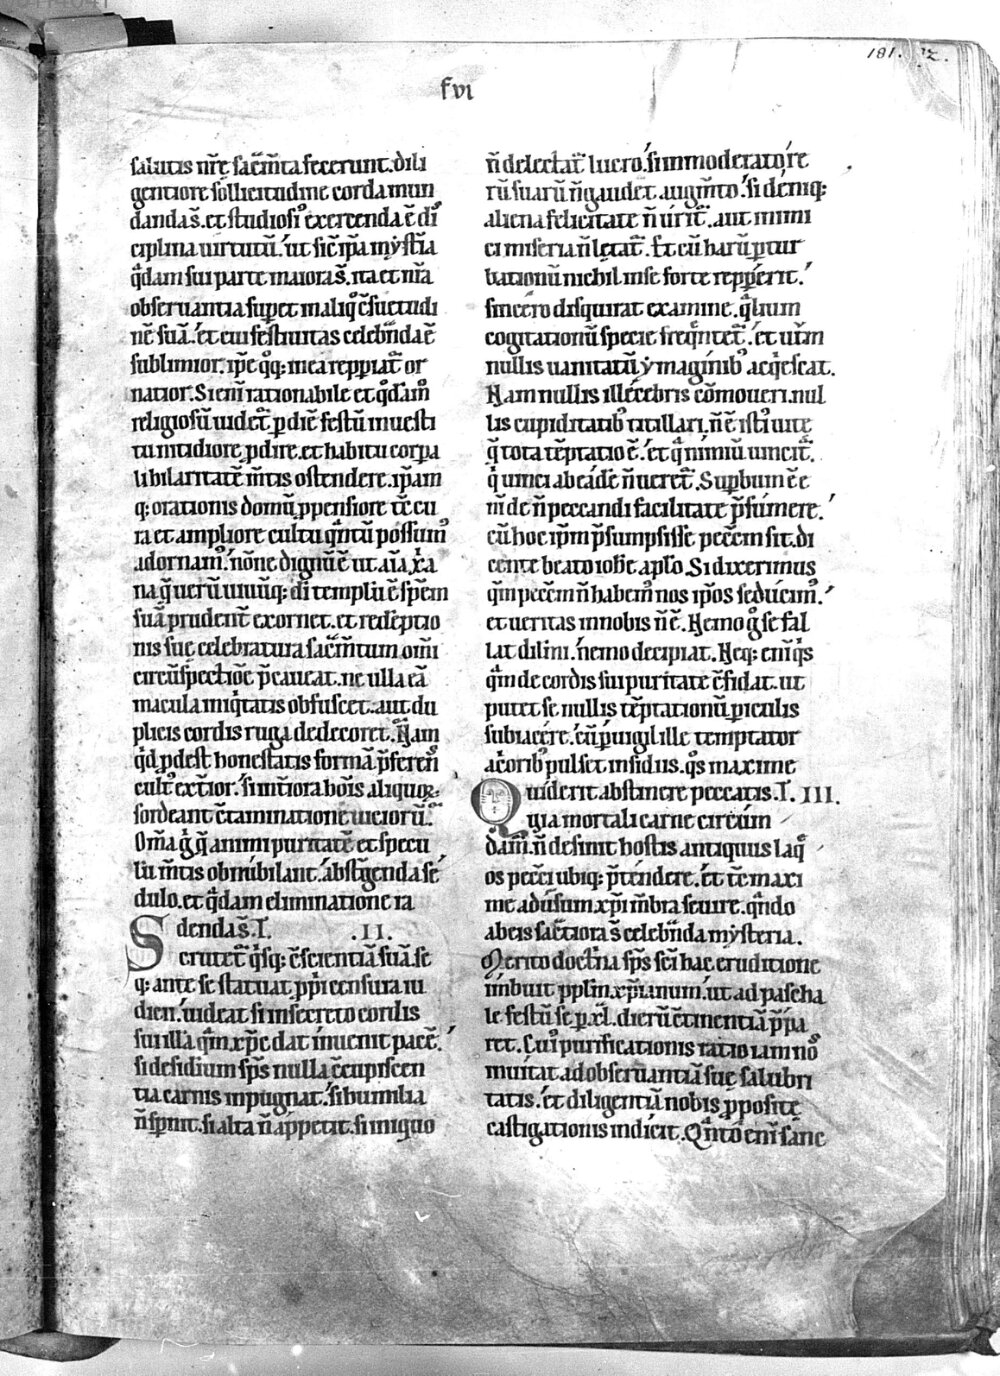 181. 
fvi
salutis nr̄ę sac̄m̄ta fecerunt. dili
gentiore sollicitudine corda mun
danda s̄. et studiosiꝰ exercenda ē di
ciplina uirtutū. ut sic̄ ip̄a mẏstīa
q̄dam sui parte maiora s̄. ita et nr̄a
obseruantia supet maliq̊ c̄suetudi
nē suā. et cui festiuitas celebn̄da ē
sublimior. ip̄e q̊q: in ea repp̄iat̄ or
natior. Si eni rationabile et q̊dam̄
religiosū uidet̄ p̄ diē festū in uesti
tu nitidiore ꝓdire. et habitu corpa
li hilaritatē m̄tis ostendere. ip̄am
q: orationis domū ꝓpensiore tc̄ cu
ra et ampliore cultu q̄ntū possumꝰ
adornamꝰ. nōne dignū ē ut aīa xp̄ia
na q̄ uerū uiuūq: di templū ē sp̄em
suā prudent̄ exornet. et redēptio
nis suę celebratura sac̄m̄tum. om̄i
circūspectiōe p̄caueat. ne ulla eā
macula iniq̇tatis obfuscet. aut du
plicis cordis ruga dedecoret. Nam
qd̄ ꝓdest honestatis formā p̄feren̄s
cultꝰ ext̄ior. si int̄iora hoīs aliquoꝝ
sordeant c̄taminatione uicioꝝ.
Om̄a g̊ q̄ animi puritatē et specu
lū m̄tis obnubilant. abst̄genda sē
dulo. et q̄dam eliminatione ra
denda s̄. T. .II.
Scrutet̄ q̇sq: c̄scientiā suā. se
q: ante se statuat ꝓp̄i censura iu
dicii. uideat si in secreto cordis
sui illā quā xp̄c dat inuenit pacē.
si desidium sp̄s nulla c̄cupiscen
tia carnis inpugnat. si humilia
n̄ sp̄nit. si alta n̄ appetit. si iniquo
n̄ delectat̄ lucro. si inmoderato re
rū suarū n̄ gaudet augm̄to. si deniq:
aliena felicitate n̄ urit̄. aut inimi
ci miseria n̄ lętat̄. Et cū harū p̄tur
bationū nichil in se forte repp̄erit.
sincero disquirat examine. q̄lium
cogitationū specie freq̄ntet̄. et utrū
nullis uanitatū ẏmaginibꝰ acq̇escat.
Nam nullis illecebris cōmoueri. nul
lis cupiditatibꝰ titillari. n̄ ē isti uitę
q̄ tota tēptatio ē. et q̄ nimiū uincit̄.
q̇ uinci ab ea dē n̄ ueret̄. Supbum ē e
ni de n̄ peccandi facilitate p̄sumere.
cū hoc ip̄m p̄sumpsisse peccm̄ sit. di
cente beato ioh̄e aplo. Si dixerimus
qm̄ peccm̄ n̄ habemꝰ nos ip̄os seducimꝰ.
et ueritas in nobis n̄ ē. Nemo g̊ se fal
lat dilmi. nemo decipiat. Neq: eni q̇s
quā de cordis sui puritate c̄fidat. ut
putet se nullis tēptationū piculis
subiacere. cū puigil ille temptator
acrioribꝰ pulset insidiis. q̊s maxime
uiderit abstinere peccatis. T. III.
Quia mortali carne circūm
damꝰ. n̄ desinit hostis antiquus laq̄
os pecci ubiq: p̄tendere. et tc̄ maxi
me aduersum xp̄i m̄bra seuire. q̄ndo
ab eis sac̄tiora s̄ celebn̄da mẏsteria.
Merito doct̄na sp̄s sc̄i hac eruditione
inbuit pplm xp̄ianum. ut ad pascha
le festū se p̄ xl. dierū c̄tinentiā p̄pa
ret. Cuiꝰ purificationis ratio iam nos
inuitat ad obseruantiā suę salubri
tatis. et diligentiā nobis ꝓpositę
castigationis indicit. Q̄ntoꝰ eni sanc